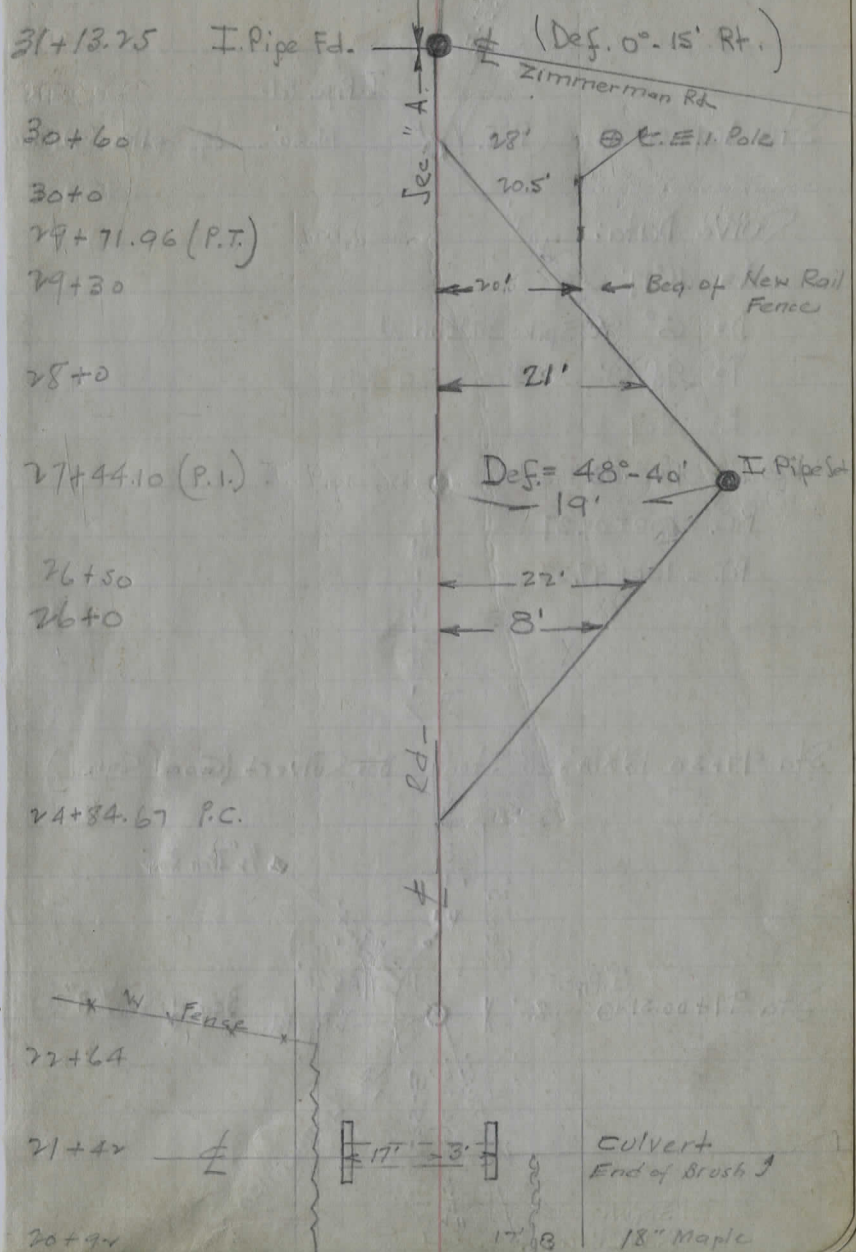 31+13.25 I. Pipe Fd. ⅊ (Def. 0°-15' Rt.)
Zimmerman Rd.
Sec. "A"
30+60 28' C.E.I. Pole
30+0 20.5'
29+71.96 (P.T.)
29+30 20' ← Beg. of New Rail
Fence
28+0 21'
27+44.10 (P.I.) Def.= 48°-40' I. Pipe
19'
26+50 22'
26+0 8'
Rd-
24+84.67 P.C.
W Fense
22+64
21+42 17' 3' Culvert
End of Brush
20+92 17' 18" Maple